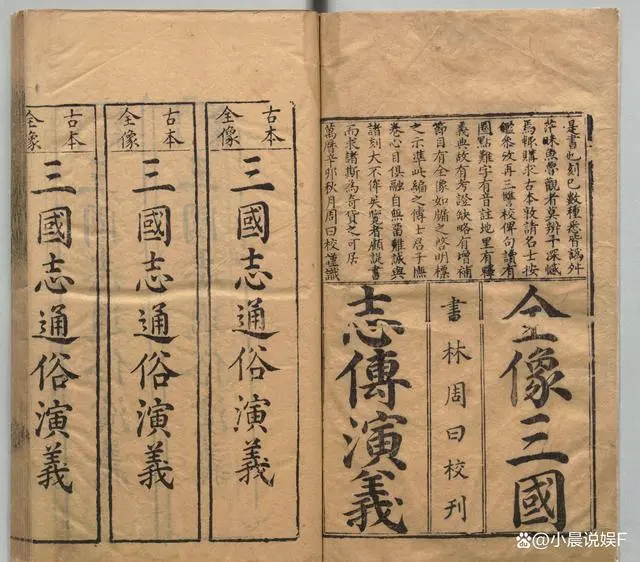 是書也刻已數種悉皆譌舛
茫昧魚魯觀者莫辨予深憾
焉輒購求古本敦請名士按
鑑參攷再三讐校俾句讀有
圈點難字有音註地里有釋
義典故有考證缺略有增補
節目有全像如牖之啓明標
之示準此編之傳士君子撫
卷心目俱融自無留難誠與
諸刻大不侔矣覽者顧諟書
而求諸斯為奇貨之可居
萬曆辛卯秋月周曰校謹識
全像三國
書林周曰校刊
志傳演義
古本
全像
三國志通俗演義
古本
全像
三國志通俗演義
古本
全像
三國志通俗演義
@小晨说娱F